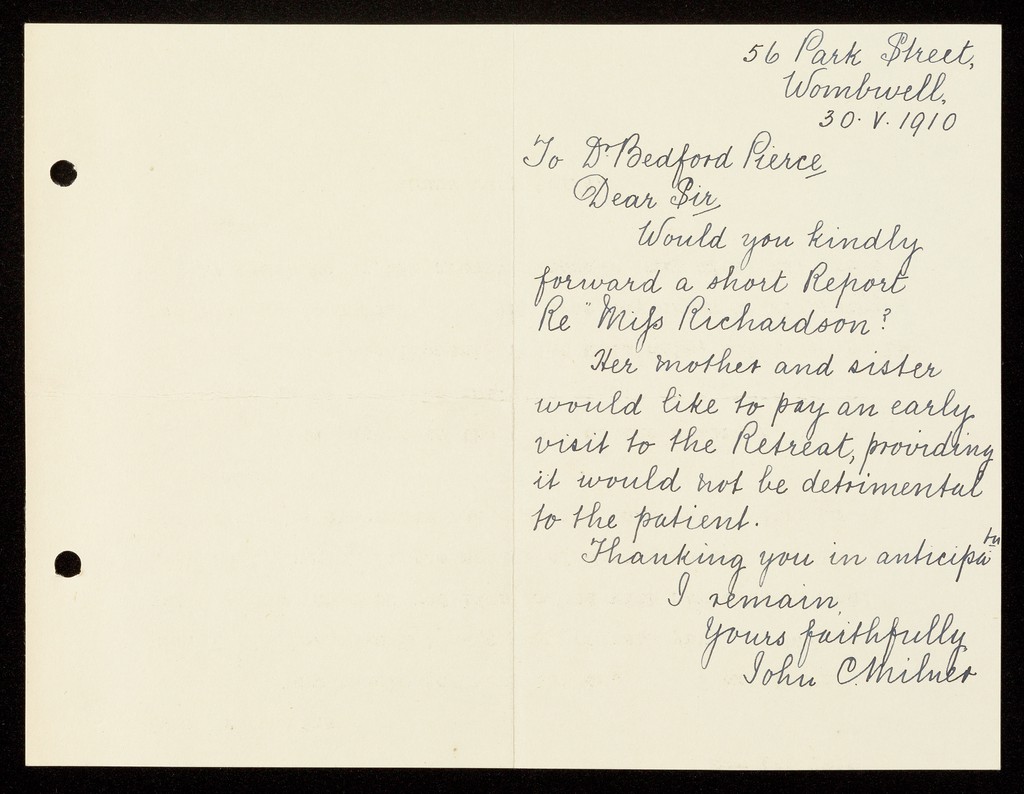 56 Park Street,
Wombwell,
30. V. 1910
To Dr. Bedford Pierce,
Dear Sir,
Would you kindly
forward a short Report
Re " Miss Richardson?
Her mother and sister
would like to pay an early
visit to the Retreat, providing
it would not be detrimental
to the patient.
Thanking you in anticipatn
I remain,
Yours faithfully,
John C. Milner